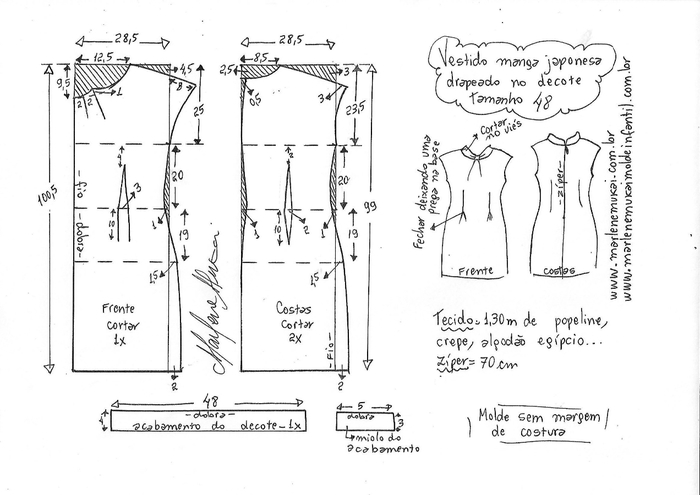 Vestido manga japonesa
drapeado no decote
tamanho 48
28,5
12,5
4,5
9,5
2
2
1
8
25
100,5
4
20
3
10
1
19
1,5
fio
-dobra-
Frente
cortar
1x
2
28,5
2,5
8,5
3
0,5
3
23,5
2
20
99
10
2
1
1
19
1,5
Costas
cortar
2x
-Fio-
2
Fechar deixando uma
prega na base
cortar
no viés
-zíper-
Frente
costas
www.marlenemukai.com.br
www.marlenemukaimoldeinfantil.com.br
Tecido=1,30m de popeline,
crepe, algodão egípcio...
zíper=70cm
48
4
-dobra-
acabamento do decote-1x
5
dobra
3
miolo do
acabamento
Molde sem margem
de costura